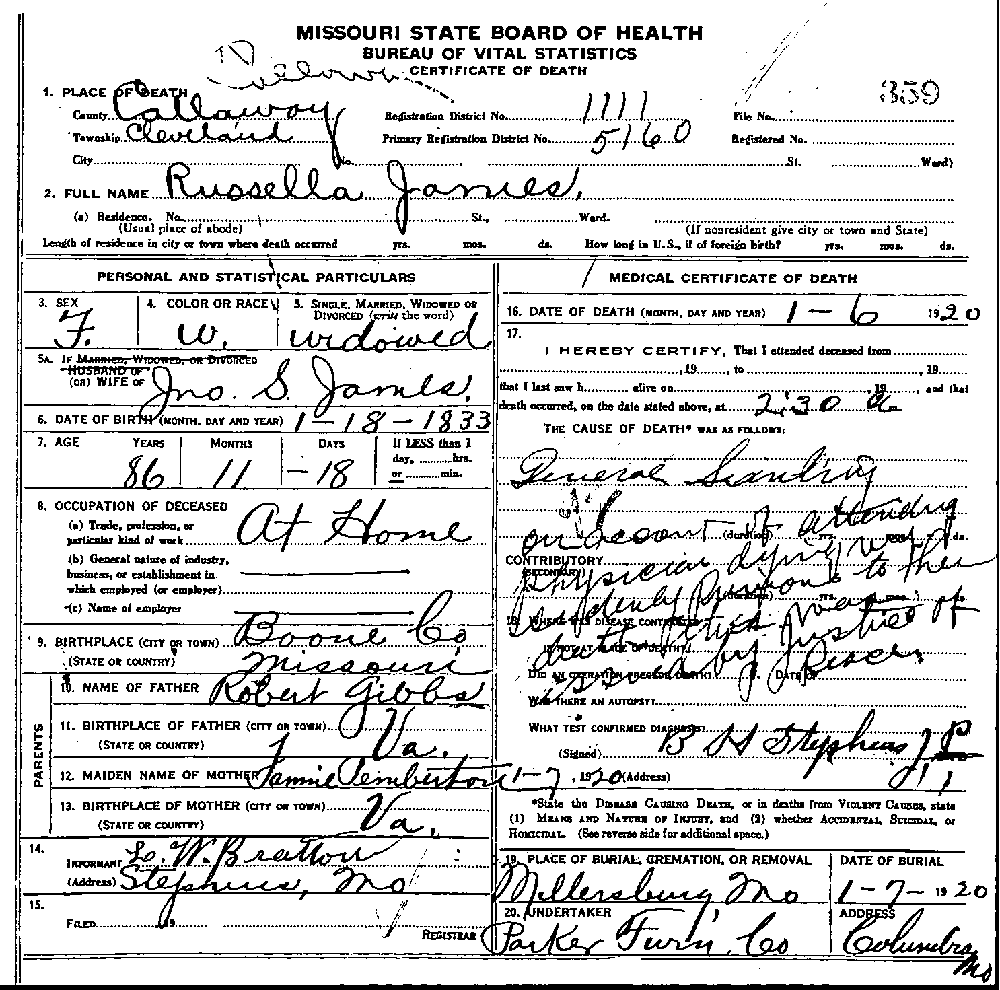 MISSOURI STATE BOARD OF HEALTH
BUREAU OF VITAL STATISTICS
CERTIFICATE OF DEATH
359
1. PLACE OF DEATH
County Callaway Registration District No. 1111 File No.
Township Cleveland Primary Registration District No. 5160 Registered No.
City No. St. Ward)
2. FULL NAME Russella James.
(a) Residence. No. St., Ward.
(Usual place of abode) (If nonresident give city or town and State)
Length of residence in city or town where death occurred yrs. mos. ds. How long in U.S., if of foreign birth? yrs. mos. ds.
PERSONAL AND STATISTICAL PARTICULARS
3. SEX 4. COLOR OR RACE 5. SINGLE, MARRIED, WIDOWED OR DIVORCED (write the word)
F. W. widowed
5A. IF MARRIED, WIDOWED, OR DIVORCED
HUSBAND OF
(OR) WIFE OF Jno. S. James.
6. DATE OF BIRTH (MONTH, DAY AND YEAR) 1-18-1833
7. AGE YEARS MONTHS DAYS If LESS than 1 day, hrs. or min.
86 11 -18
8. OCCUPATION OF DECEASED
(a) Trade, profession, or particular kind of work At Home
(b) General nature of industry, business, or establishment in which employed (or employer)
(c) Name of employer
9. BIRTHPLACE (CITY OR TOWN) Boone Co
(STATE OR COUNTRY) Missouri
PARENTS
10. NAME OF FATHER Robert Gibbs
11. BIRTHPLACE OF FATHER (CITY OR TOWN)
(STATE OR COUNTRY) Va.
12. MAIDEN NAME OF MOTHER Fannie Pemberton
13. BIRTHPLACE OF MOTHER (CITY OR TOWN)
(STATE OR COUNTRY) Va.
14. INFORMANT L. W. Bratton
(Address) Stephens, Mo
15.
FILED 19 REGISTRAR
MEDICAL CERTIFICATE OF DEATH
16. DATE OF DEATH (MONTH, DAY AND YEAR) 1-6 1920
17.
I HEREBY CERTIFY, That I attended deceased from
, 19 , to , 19
that I last saw h alive on , 19 , and that
death occurred, on the date stated above, at 2:30 a
THE CAUSE OF DEATH* WAS AS FOLLOWS:
General
on account of attending
(duration) ds.
CONTRIBUTORY
(SECONDARY)
physician dying
suddenly to the
18. WHERE WAS DISEASE CONTRACTED
death
IF NOT AT PLACE OF DEATH?
issued by Justice of
DID AN OPERATION PRECEDE DEATH? DATE OF
WAS THERE AN AUTOPSY
WHAT TEST CONFIRMED DIAGNOSIS?
(Signed) B H Stephens J P
1-7, 1920 (Address)
*State the DISEASE CAUSING DEATH, or in deaths from VIOLENT CAUSES, state
(1) MEANS AND NATURE OF INJURY, and (2) whether ACCIDENTAL, SUICIDAL, or
HOMICIDAL. (See reverse side for additional space.)
19. PLACE OF BURIAL, CREMATION, OR REMOVAL DATE OF BURIAL
Millersburg, Mo 1-7-1920
20. UNDERTAKER ADDRESS
Parker Furn. Co Columbia Mo